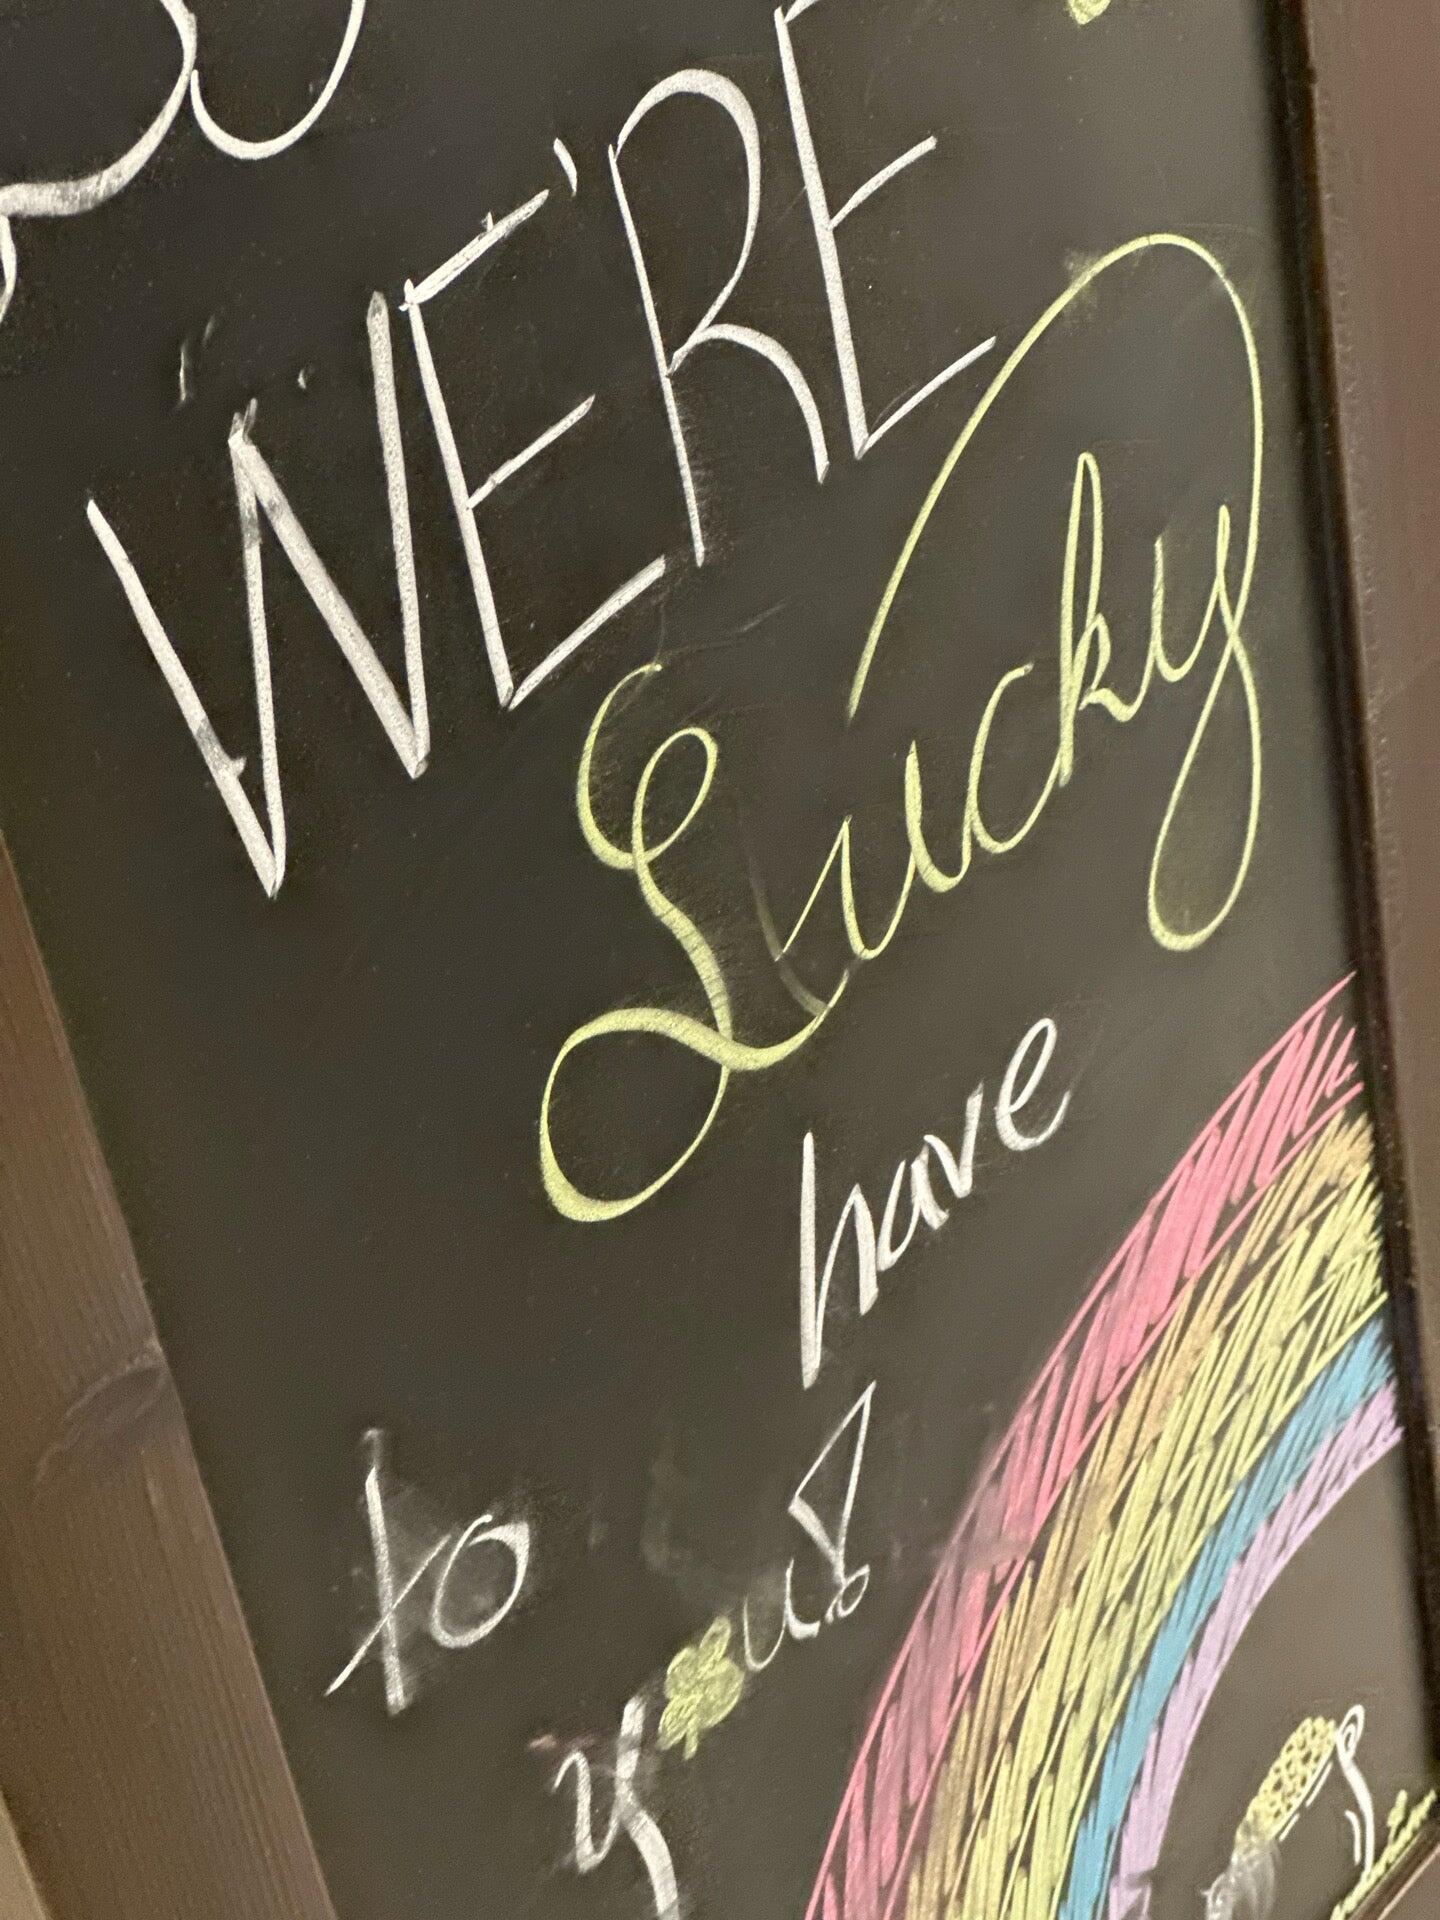 WE'RE
Lucky
to have
y🍀u!